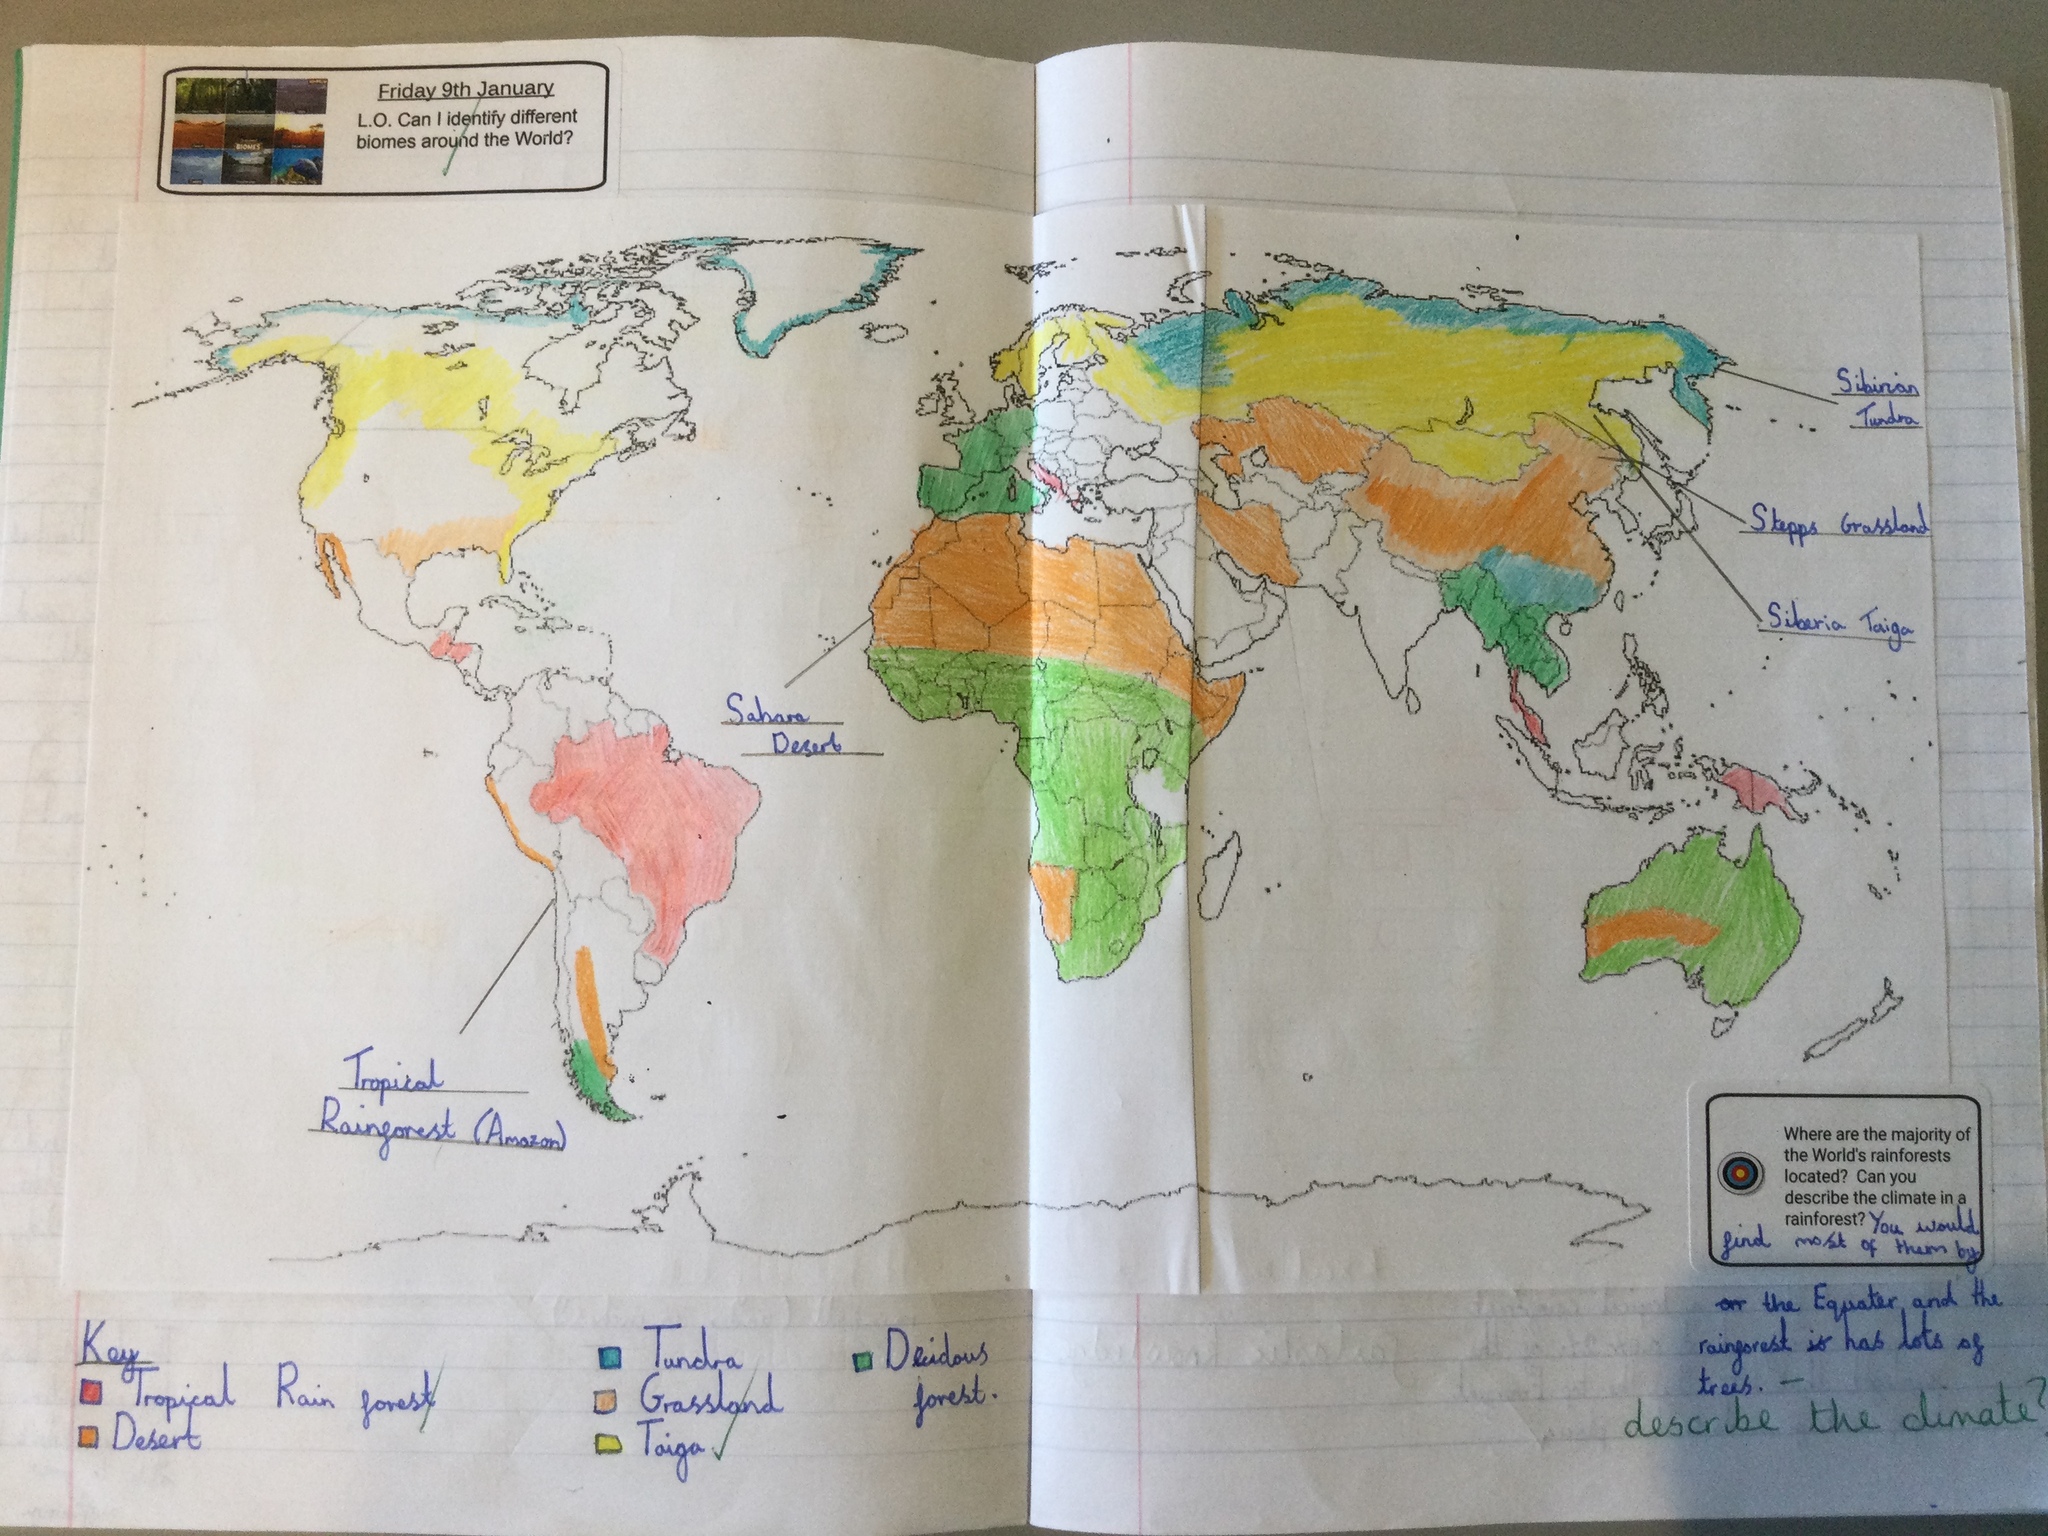 Friday 9th January
L.O. Can I identify different
biomes around the World?
BIOMES
Sibirian
Tundra
Stepps Grassland
Siberia Taiga
Sahara
Desert
Tropical
Rainforest (Amazon)
Where are the majority of
the World's rainforests
located? Can you
describe the climate in a
rainforest? You would
find most of them by
on the Equater and the
rainforest is has lots of
trees. —
describe the climate?
Key
Tropical Rain forest
Desert
Tundra
Grassland
Taiga
Decidous
forest.